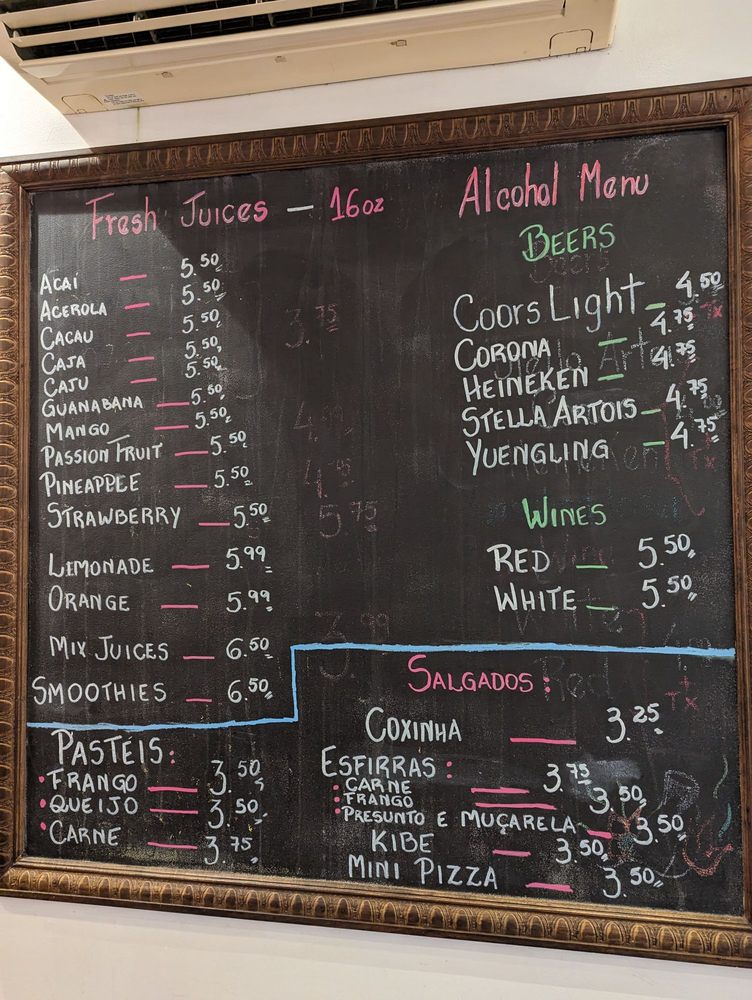 Fresh Juices — 16oz
Açaí — 5.50
Acerola — 5.50
Cacau — 5.50
Caja — 5.50
Caju — 5.50
Guanabana — 5.50
Mango — 5.50
Passion Fruit — 5.50
Pineapple — 5.50
Strawberry — 5.50
Limonade — 5.99
Orange — 5.99
Mix Juices — 6.50
Smoothies — 6.50
Pastéis:
Frango — 3.50
Queijo — 3.50
Carne — 3.75
Alcohol Menu
Beers
Coors Light — 4.50
Corona — 4.75
Heineken — 4.75
Stella Artois — 4.75
Yuengling — 4.75
Wines
Red — 5.50
White — 5.50
Salgados:
Coxinha — 3.25
Esfirras:
Carne — 3.75
Frango — 3.50
Presunto e Muçarela — 3.50
Kibe — 3.50
Mini Pizza — 3.50